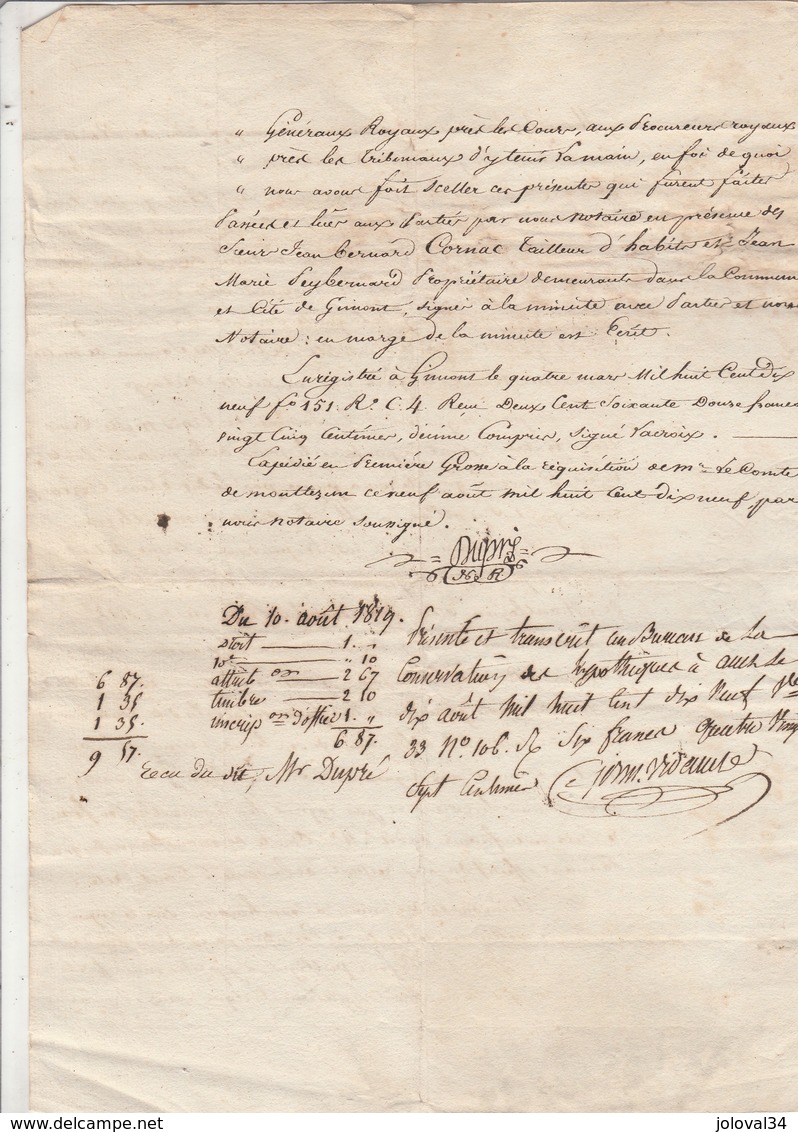 " Généraux Royaux près les Cours, aux Procureurs royaux
" près les tribunaux d'y tenir la main, en foi de quoi
" nous avons fait sceller ces présentes qui furent faites
Passées et lües aux Parties par nous notaire en présence des
Sieurs Jean bernard Cornac tailleur d'habits et Jean
Marie Peybernard Propriétaire demeurants dans la Commune
et Cité de Gimont, signés à la minute avec Parties et nous
Notaire; en marge de la minute est Ecrit.
Enregistré à Gimont le quatre mars Mil huit Cent Dix
neuf fo 151. Ro. C. 4. Reçu Deux Cent Soixante Douze francs
vingt Cinq Centimes, décime Compris, signé Lacroix.
Expédié en Première Grosse à la réquisition de mr. Le Comte
de montlezun ce neuf août mil huit Cent dix neuf, par
nous notaire soussigné.
Dupré
Du 10. août 1819.
droit 1. "
10e " 10
2 67
timbre 2 10
inscrip on d'office 1. "
6 87.
6 87.
1 35
1 35.
9 57.
recu du dit, Mr Dupré
Présenté et transcrit au Bureau de La
Conservation des hypothèques à auch Le
dix août Mil huit Cent dix Neuf Vol
33 No. 106. Six francs quatre Vingt
Sept Centimes
joloval34
delcampe.net